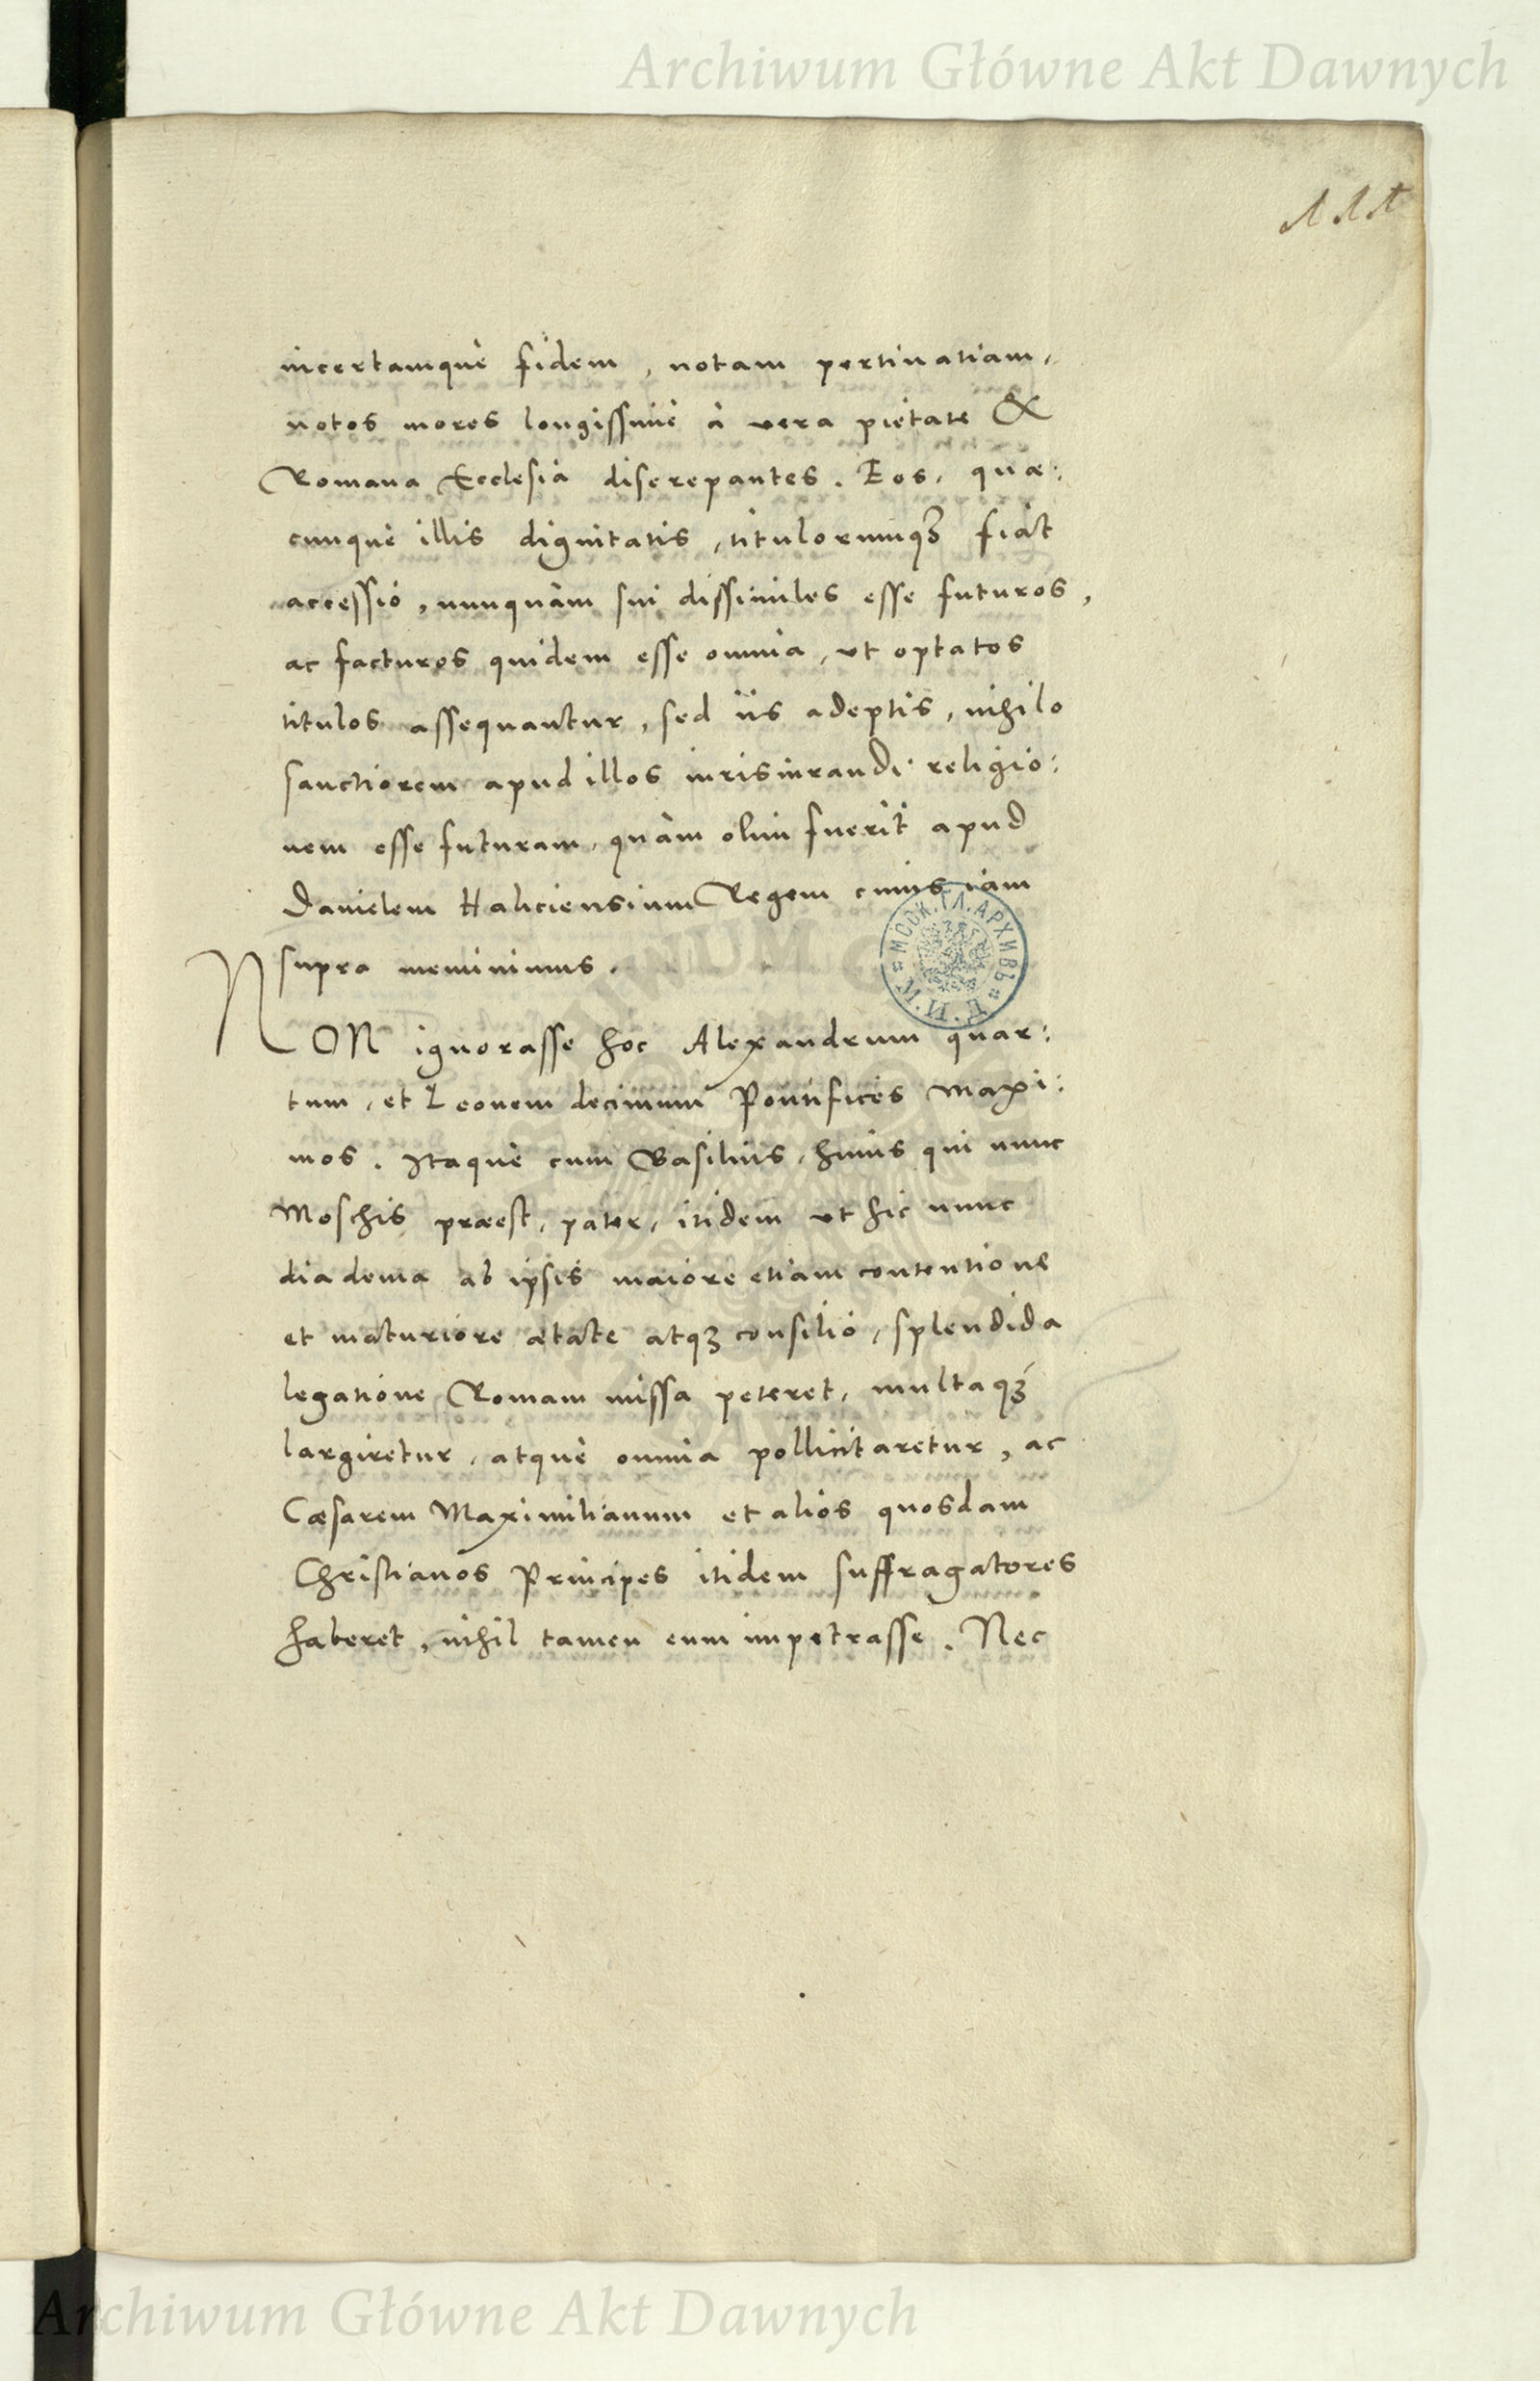 Archiwum Główne Akt Dawnych
111
incertamquè fidem, notam pertinatiam,
notos mores longissimè à vera pietate &
Romana Ecclesia discrepantes. Eos, quæ:
cunquè illis dignitatis, titulorumqꝫ fiat
accessio, nunquàm sui dissimiles esse futuros,
ac facturos quidem esse omnia, vt optatos
titulos assequantur, sed iis adeptis, nihilo
sanctiorem apud illos iurisiurandi religio:
nem esse futuram, quàm olim fuerit apud
Danielem Haliciensium Regem cuius iam
supra meminimus.
NON ignorasse hoc Alexandrum quar:
tum, et Leonem decimum Pontifices Maxi:
mos. Itaquè cum Basilius, huius qui nunc
Moschis præest, pater, itidem vt hic nunc
diadema ab ipsis maiore etiam contentione
et maturiore ætate atqꝫ consilio, splendida
legatione Romam missa peteret, multaqꝫ
largiretur, atquè omnia pollicitaretur, ac
Cæsarem Maximilianum et alios quosdam
Christianos Principes itidem suffragatores
haberet, nihil tamen eum impetrasse. Nec
МОСК. ГЛ. АРХИВЪ
Archiwum Główne Akt Dawnych